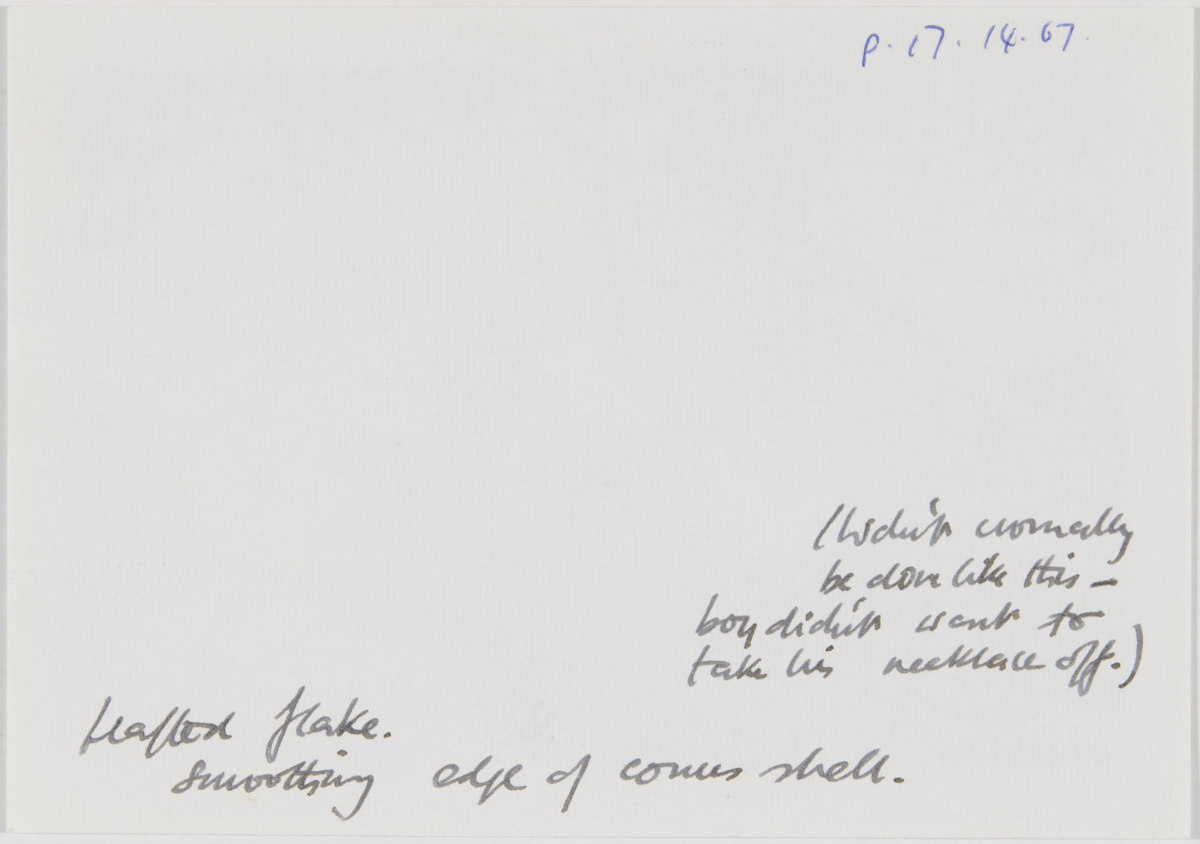 P. 17. 14. 67.
normally
be done like this –
boy didn't want to
take his necklace off.)
Hafted flake.
smoothing edge of conus shell.